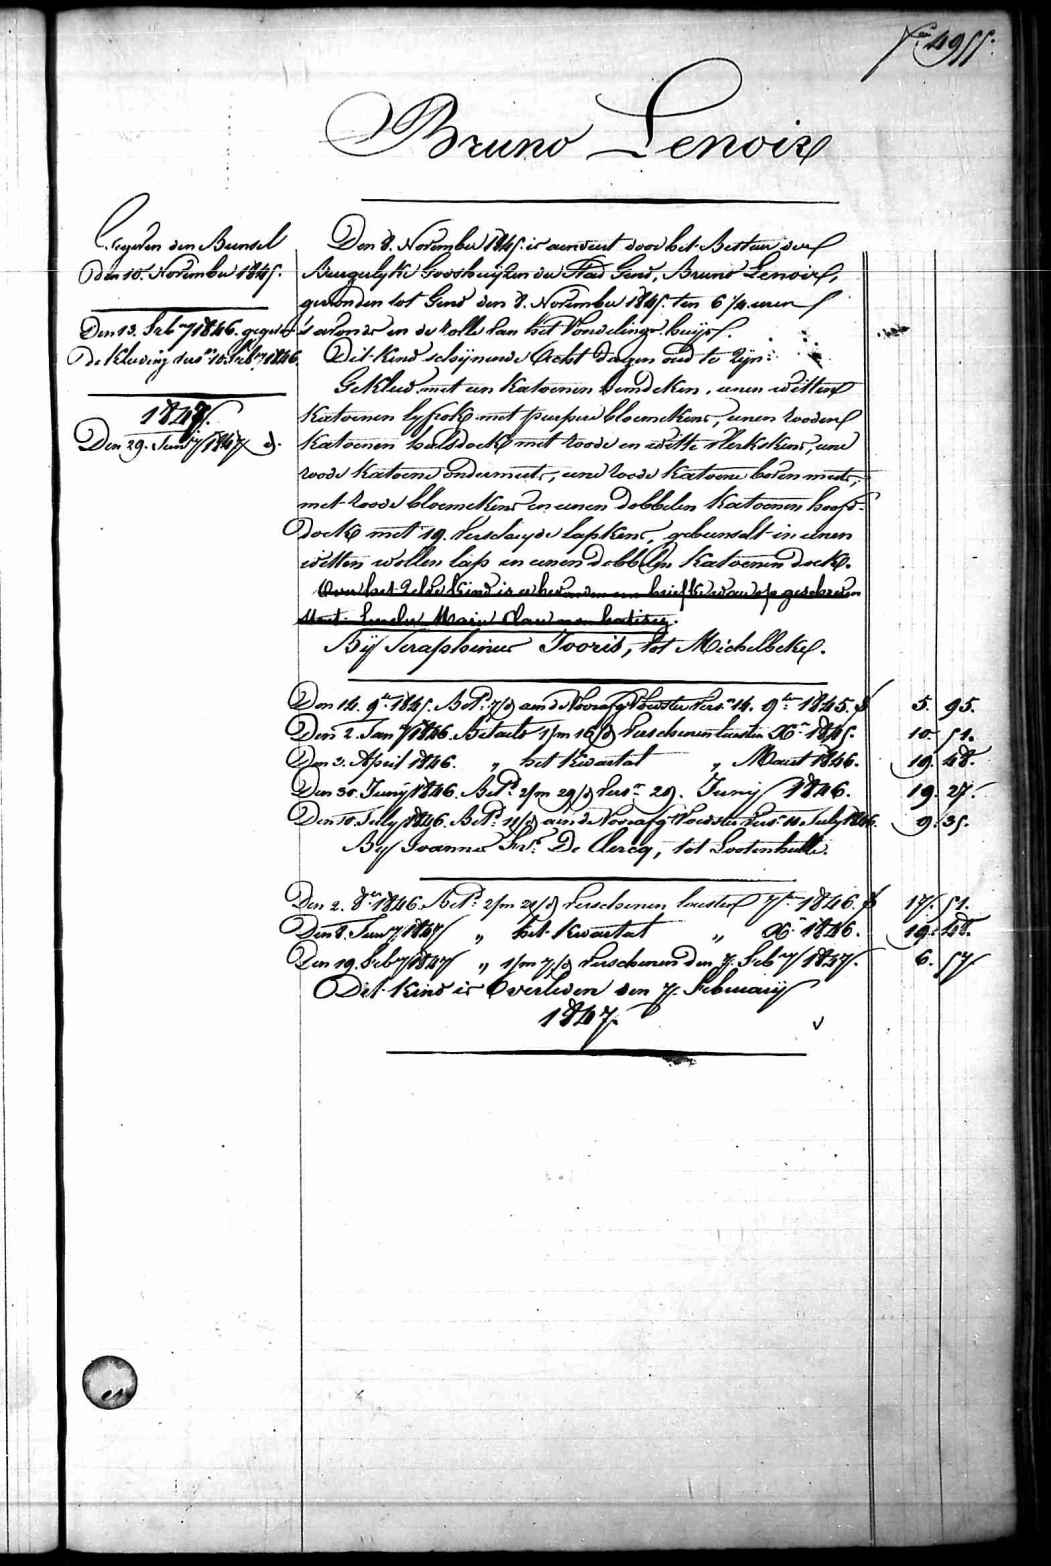 N.º 4955.
Bruno Lenoir
Gegeven den Bunsel
den 10. November 1845.
Den 13. Feb.ry 1846. gegeven
de Kleeding
1847.
Den 29. January 1847 d.
Den 8. November 1845. is aenveert door het Bestuer der
Burgerlyke Godshuijzen der Stad Gend, Bruno Lenoir,
gevonden tot Gend den 8. November 1845. ten 6 1/4 uren
's avonds in de rolle van het Vondelinge-huijs.
Dit kind schijnende Acht dagen oud te zyn:
Gekleed met een katoenen hemdeken, eenen witten
katoenen lyfrok met purpere bloemekens, eenen rooden
katoenen halsdoek met roode en witte vlerkskens, eene
roode katoene ondermuts, eene roode katoene boven muts,
met roode bloemekens en eenen dobbelen katoenen hoofd-
doek met 19. verscheyde lapkens, gebunselt in eenen
witten wollen lap en eenen dobbelen katoenen doek.
Over het zelve kind is er bevonden een briefke waer op geschreven
staet:
By Seraphinus Tooris, tot Michelbeke.
Den 14. 9.er 1845. Bet.d 7/d aen de Voorafg. Voedster vers.n 14. 9.ber 1845. f 5. 95.
Den 2. Jan.ry 1846. Betaelt 1/m 16/d verschenen laesten X.r 1845. 10. 51.
Den 3. April 1846. „ het kwartael „ Maert 1846. 19. 48.
Den 30. Juny 1846. Bet.d 2/m 29/d vers.n 29. Juny 1846. 19. 27.
Den 10. July 1846. Bet.d 11/d aen de Voorafg. Voedster vers. 10 July 1846. 9. 35.
By Joannes De Clercq, tot Lootenhulle.
Den 2. 8.er 1846. Bet.d 2/m 21/d verschenen laesten 7.r 1846. f 17. 51.
Den 8. Jan.ry 1847 „ het kwartael „ X.r 1846. 19. 48.
Den 19. Feb.ry 1847 „ 1/m 7/d verschenen den 7. Feb.ry 1847. 6. 57
Dit kind is Overleden den 7. February
1847.